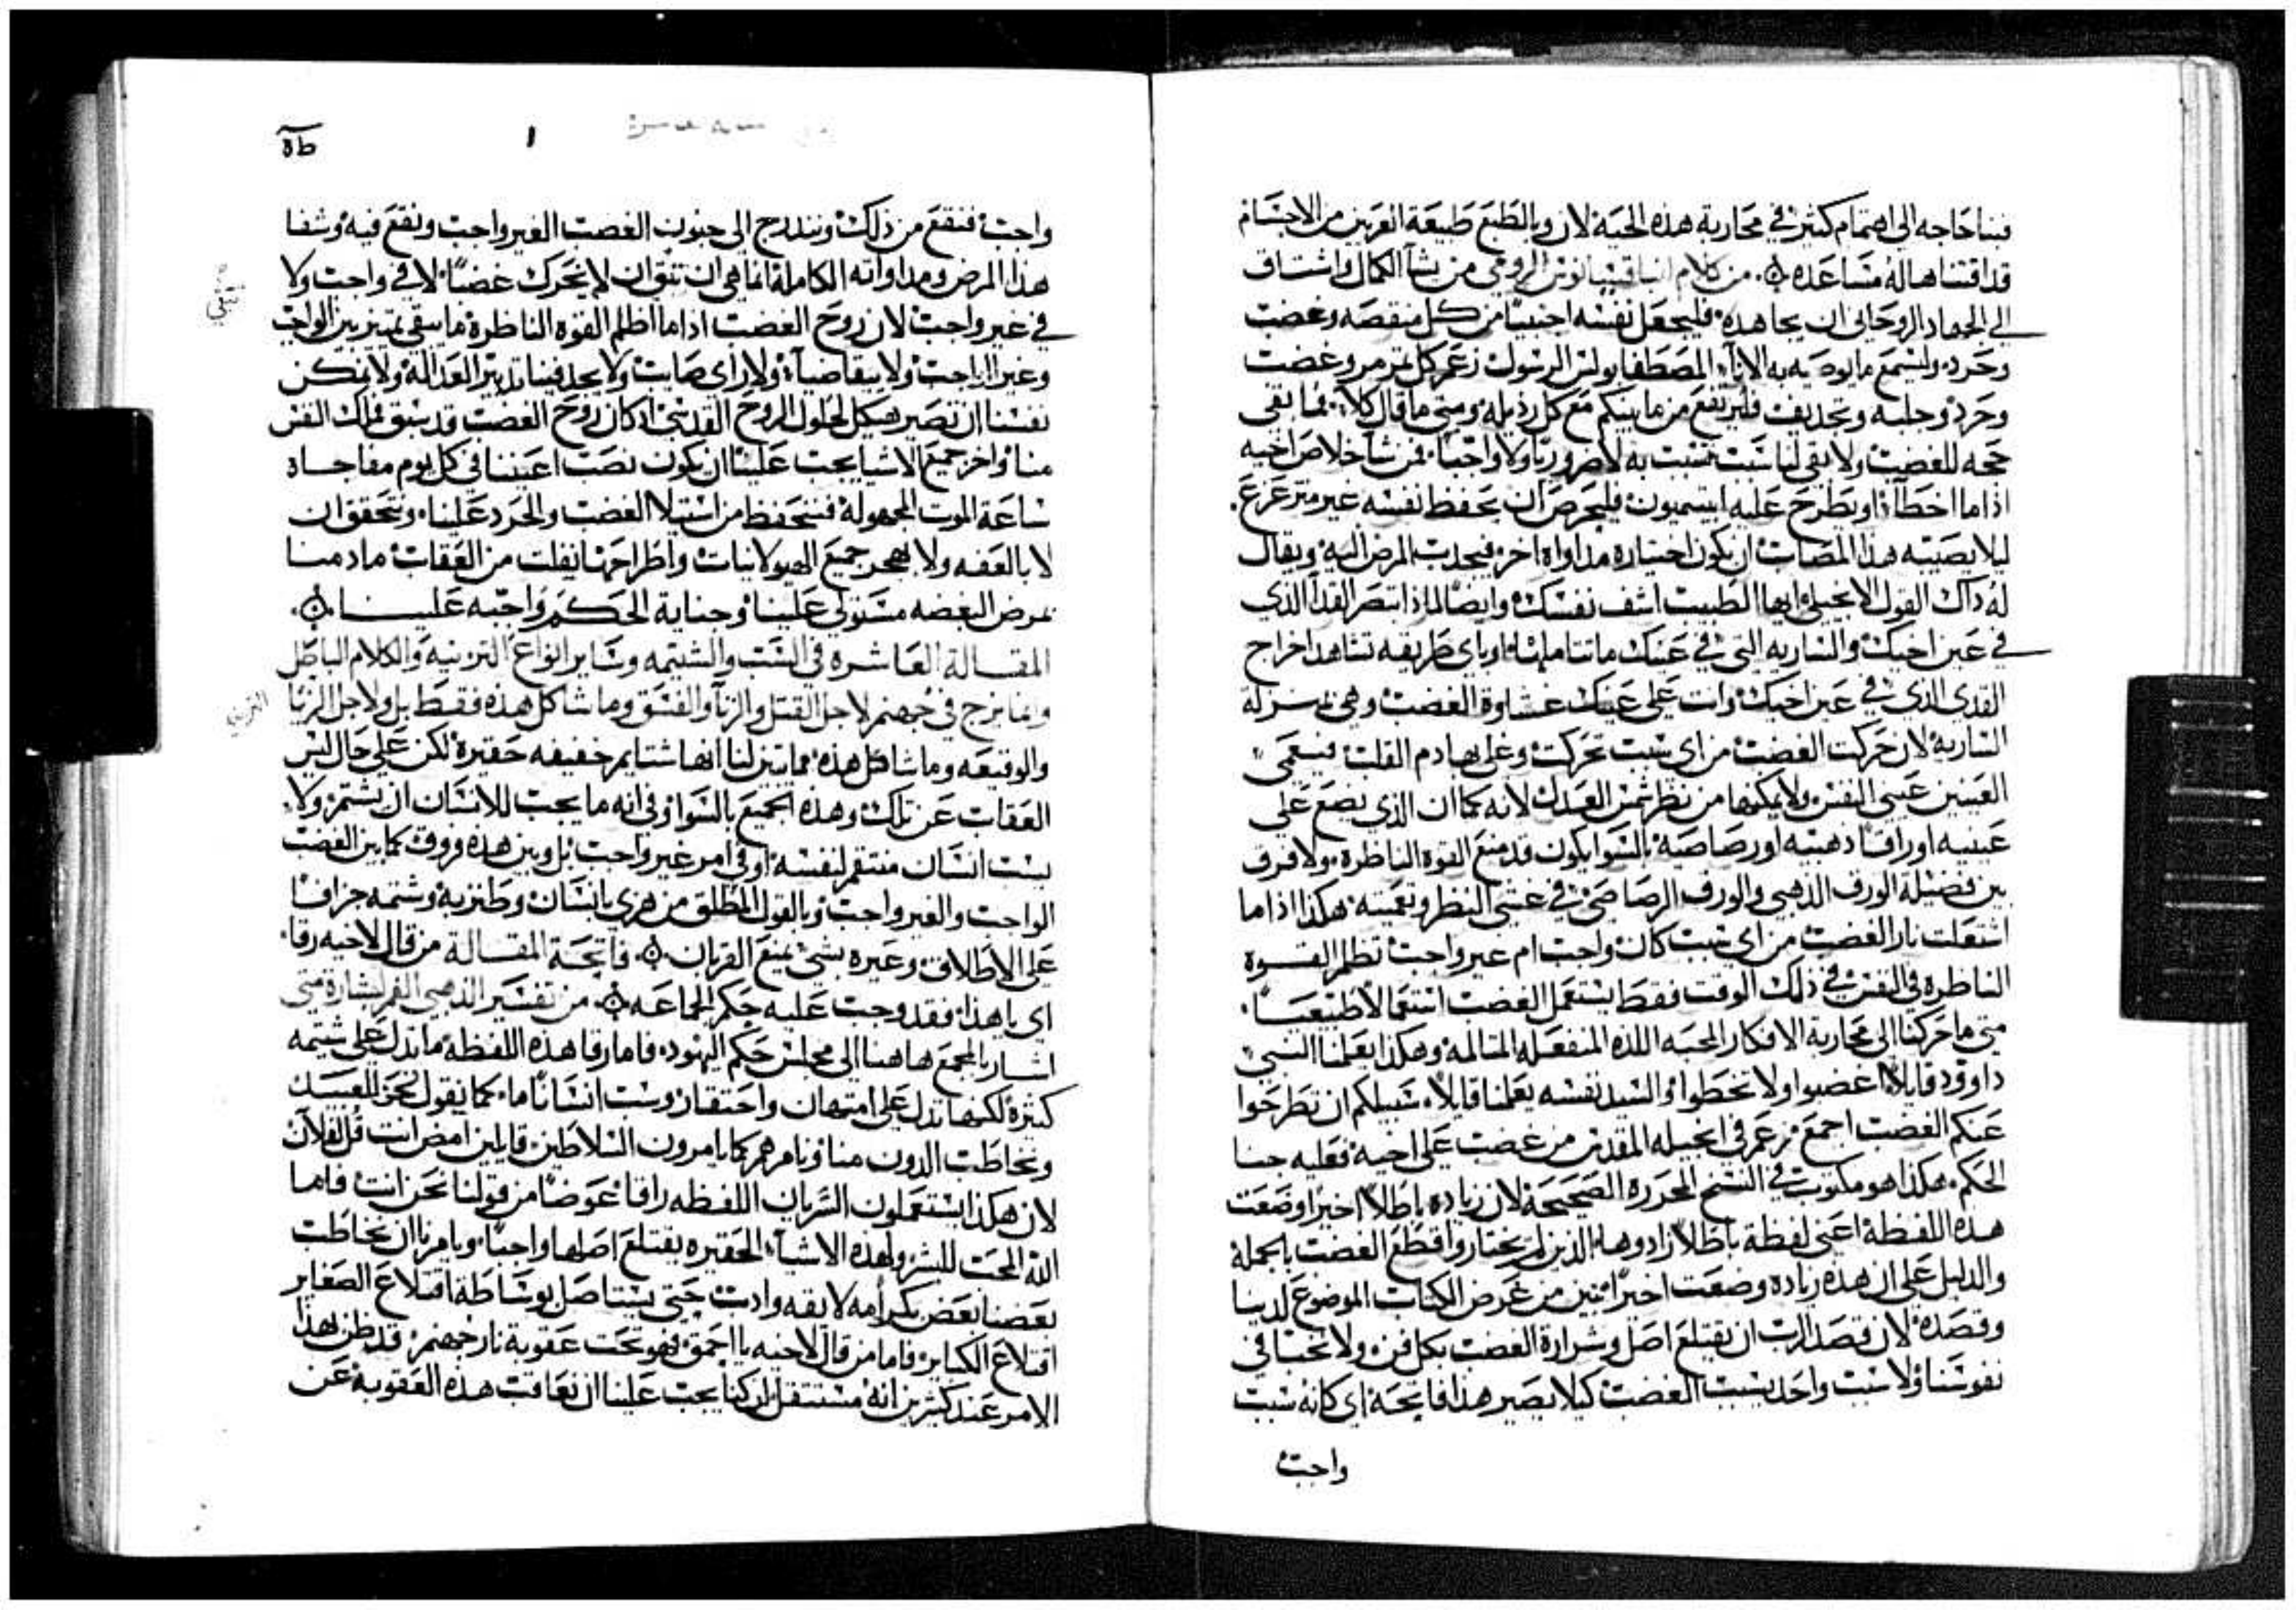 فينا حاجه الى اهتمام كثير في محاربة هذه الحيه لان وبالطبع طبيعة القربين من الاجسام
قد اقتناها له مساعده ٥. من كلام انبا قسيانوس الرومي من يشآ الكمال واشتاق
الي الجهاد الروحاني ان يجاهده فليجعل نفسه اجنبيًا من كل منقصه وغضب
وحرد وليسمع ما يوصيه به الاناء المصطفا بولس الرسول زعم كل تمرمر وغضب
وحرد وجلبه وتجديف فليرتفع من ما بينكم مع كل رذيله ومتى ما قال كلا فما بقى
حجه للغضب ولا بقى لنا سبب نتسبب به لا ضروريًا ولا واجبًا فمن شآ خلاص اخيه
اذا ما اخطآ او يطرح عليه ابيتيميون فليحرص ان يحفظ نفسه غير متزعزع.
ليلا يصيبه هذا المصاب ان يكون اختياره مداواة اخر فيجذب المرض اليه ويقال
له ذاك القول الانجيلي ايها الطبيب اشف نفسك وايضًا لماذا تبصر القذآ الذي
في عين اخيك والساريه التي في عينك ما تتاملها او باي طريقه تشاهد اخراج
القذى الذي في عين اخيك وانت على عينك غشاوة الغضب وهي بمنزلة
الساريه لان حركت الغضب من اي سبب تحركت وغليها دم القلب فيعمى
العينين عيني النفس ولا يمكنها من نظر شمس العدل لانه كما ان الذي يضع على
عينيه اوراقًا دهبيه او رصاصيه بالسوا يكون قد منع القوه الناظره ولا فرق
بين فضيلة الورق الذهبي والورق الرصاصي في غشي النظر وتعميته هكذا اذا ما
اشتعلت نار الغضب من اي سبب كان واجب ام غير واجب تظلم القوه
الناظره في النفس في ذلك الوقت فقط يستعمل الغضب استعمالًا طبيعيًا.
متى ما حركنا الى محاربة الافكار المحبه اللذه المنفعله المتالمه وهكذا يعلمنا النبي
داوود قايلًا اغضبوا ولا تخطوا والسيد نفسه يعلمنا قايلًا سبيلكم ان تطرحوا
عنكم الغضب اجمع زعم في انجيله المقدس من غضب على اخيه فعليه جنا
الحكم هكذا هو مكتوب في النسخ المحرره الصحيحة لان زيادة باطلًا اخيرًا وضعت
هذه اللفظة اعني لفظة باطلًا زادوها الذين لم يختاروا قطع الغضب بالجملة
والدليل على ان هذه زيادة وضعت اخيرًا تبين من غرض الكتاب الموضوع لدينا
وقصده لان قصد الرب ان يقتلع اصل وشرارة الغضب بكل فن ولا يخبا في
نفوسنا ولا سبب واحد يسبب الغضب كيلا يصير هذا فاتحة اي كانه سبب
واجب
طه
واجب فنقع من ذلك ونندرج الى جنون الغضب الغير واجب ونقع فيه وشفا
هذا المرض ومداواته الكاملة انما هي ان تتقن ان لا يتحرك غضبًا لا في واجب ولا
في غير واجب لان روح الغضب اذا ما اظلم القوه الناظرة ما يبقى تمييز بين الواجب
وغير الواجب ولا يبقا ضياء ولا راي صايب ولا يجد فينا تدبير العدالة ولا يمكن
نفسنا ان تصير هيكل لحلول الروح القدسى اذ كان روح الغضب قد سبق فملك النفس
منا واخر جميع الاشيا يجب علينا ان يكون نصب اعيننا في كل يوم مفاجاة
ساعة الموت المجهولة فنتحفظ من استيلا الغضب والحرد علينا ونتحقق ان
لا بالعفه ولا بهجر جميع الهيولانيات واطراحها نفلت من العقاب ما دمنا
بمرض البغضه مستولي علينا وجناية الحكم واجبه علينا ٥.
المقالة العاشره في السب والشتيمه وساير انواع التزنيه والكلام الباطل
وانما يزج في جهنم لاجل القتل والزنآ والفسق وما شاكل هذه فقط بل ولاجل الزنا
والوقيعه وما شاكل هذه مما تبين لنا انها شتايم خفيفه حقيرة لكن على حال ليس
العقاب عن تلك وهذه الجميع بالسوا وفي انه ما يجب للانسان ان يشتم ولا
يسب انسان منتقم لنفسه او في امر غير واجب بل وبين هذه فروق كما بين الغضب
الواجب والغير واجب وبالقول المطلق من هزي بانسان وطنز به وشتمه جزافًا
على الاطلاق وعيره بشي يمنع القربان ٥. فاتحة المقالة من قال لاخيه رقا.
اي يا هذا فقد وجب عليه حكم الجماعه ٥. من تفسير الذهبي الفم لبشارة متى
اشار بالمجمع هاهنا الى مجلس حكم اليهود فاما رقا هذه اللفظة ما تدل على شتيمه
كثيرة لكنها تدل على امتهان واحتقار وسب انسانًا ما كما نقول نحن للعبيد
ونخاطب الدون منا ونامرهم كما يامرون السلاطين قايلين امض انت قل لفلان
لان هكذا يستعملون السريان اللفظه راقا عوضًا من قولنا نحن انت فاما
الله المحب للبشر ولهذه الاشيآ الحقيره يقتلع اصلها واجبًا ويامرنا ان نخاطب
بعضنا بعض بكرامه لايقه وادب حتى يستاصل بوساطة اقتلاع الصغاير
اقتلاع الكباير فاما من قال لاخيه يا احمق فهو تحت عقوبة نار جهنم قد ظن هذا
الامر عند كثيرين انه مستثقل ان كنا يجب علينا ان نعاقب هذه العقوبة عن